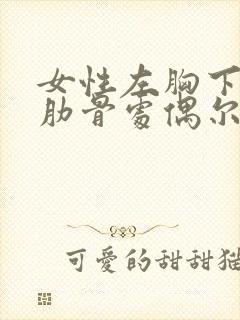 女性左胸下
肋骨處偶尔
可愛的甜甜猫